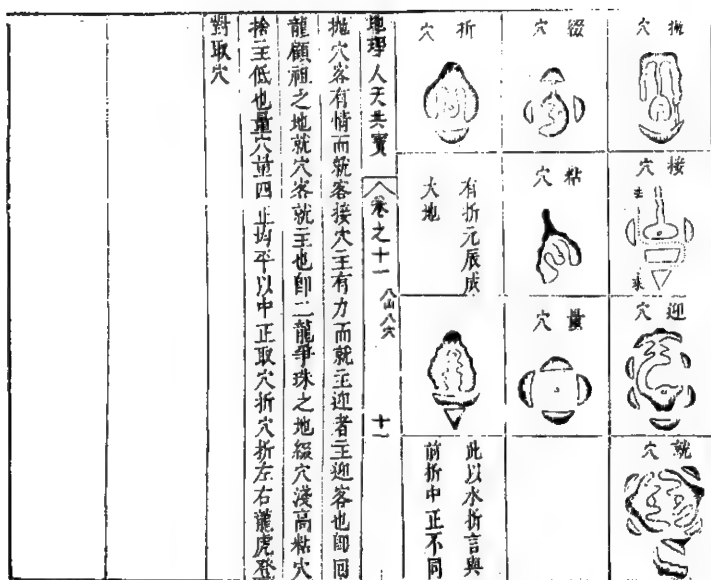 拋穴
接穴
迎穴
就穴
綴穴
粘穴
量穴
折穴
有折元辰成
大地
此以水折言與
前折中正不同
地理人天共寶
卷之十一
八山八穴
十一
拋穴客有情而就客接穴主有力而就主迎者主迎客也即回
龍顧祖之地就穴客就主也即二龍爭珠之地綴穴淺高粘穴
捨主低也量穴量四正均平以中正取穴折穴折左右龍虎登
對取穴